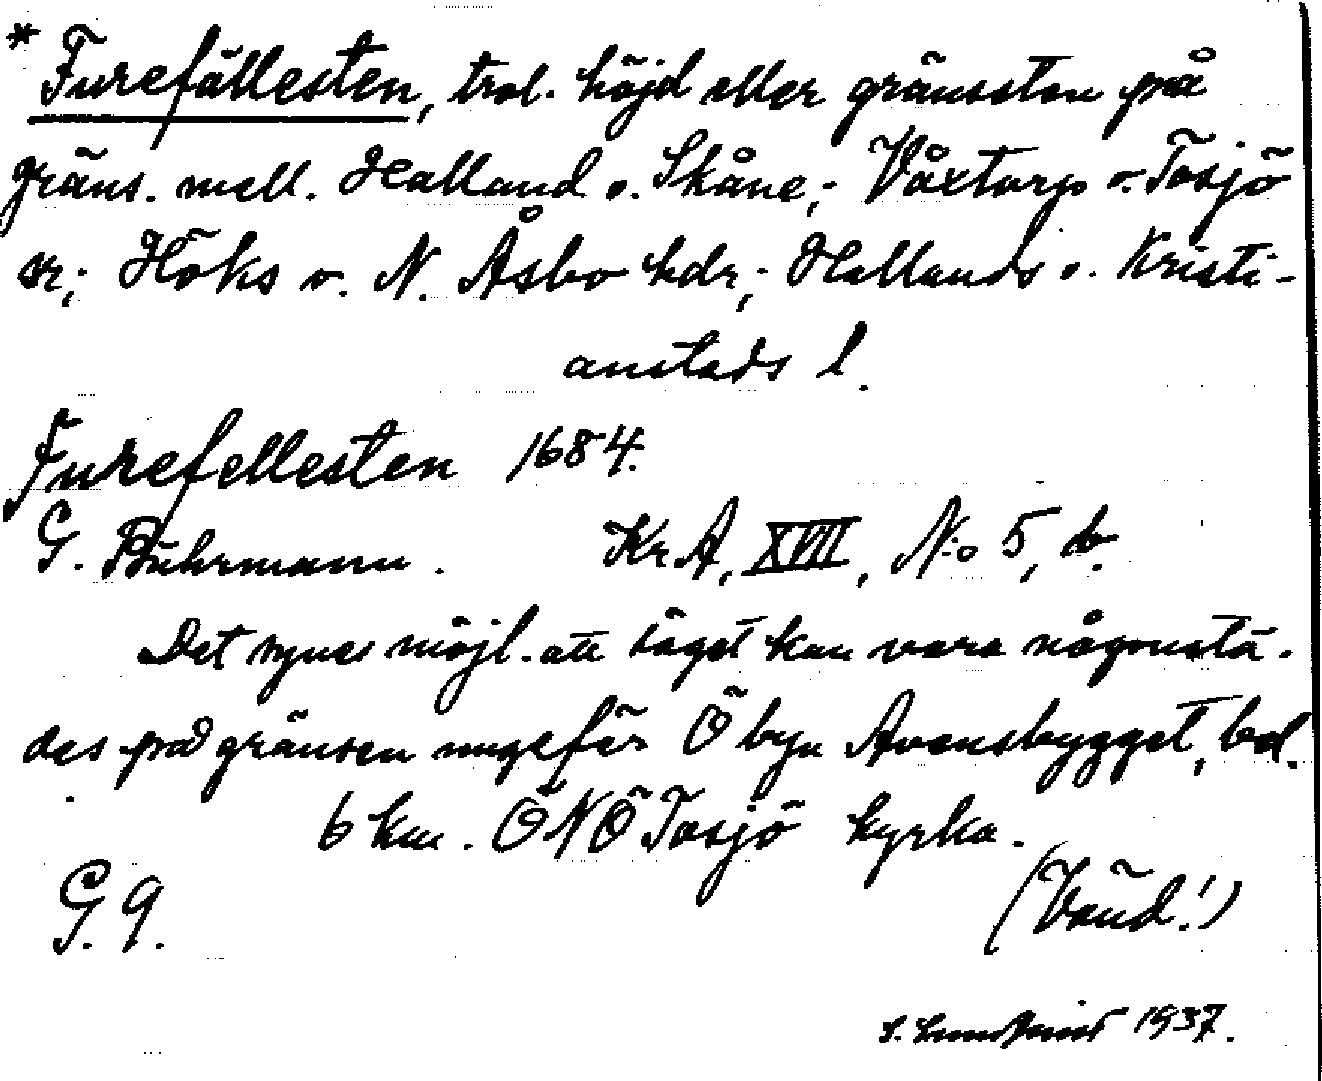 * Furefällesten, trol. höjd eller gränssten på
gräns. mell. Halland o. Skåne; Våxtorp o. Tåsjö
sr; Höks o. N. Åsbo hdr; Hallands o. Kristi-
anstads l.
Furefellesten 1684.
G. Buhrmann. KrA, XVIII, N:o 5, b.
Det synes möjl. att läget kan vara någonstä-
des på gränsen ungefär Ö byn Avensbygget, bel.
6 km. ÖNÖ Tåsjö kyrka.
G. 9. (Vänd!)
S. Lundqvist 1937.